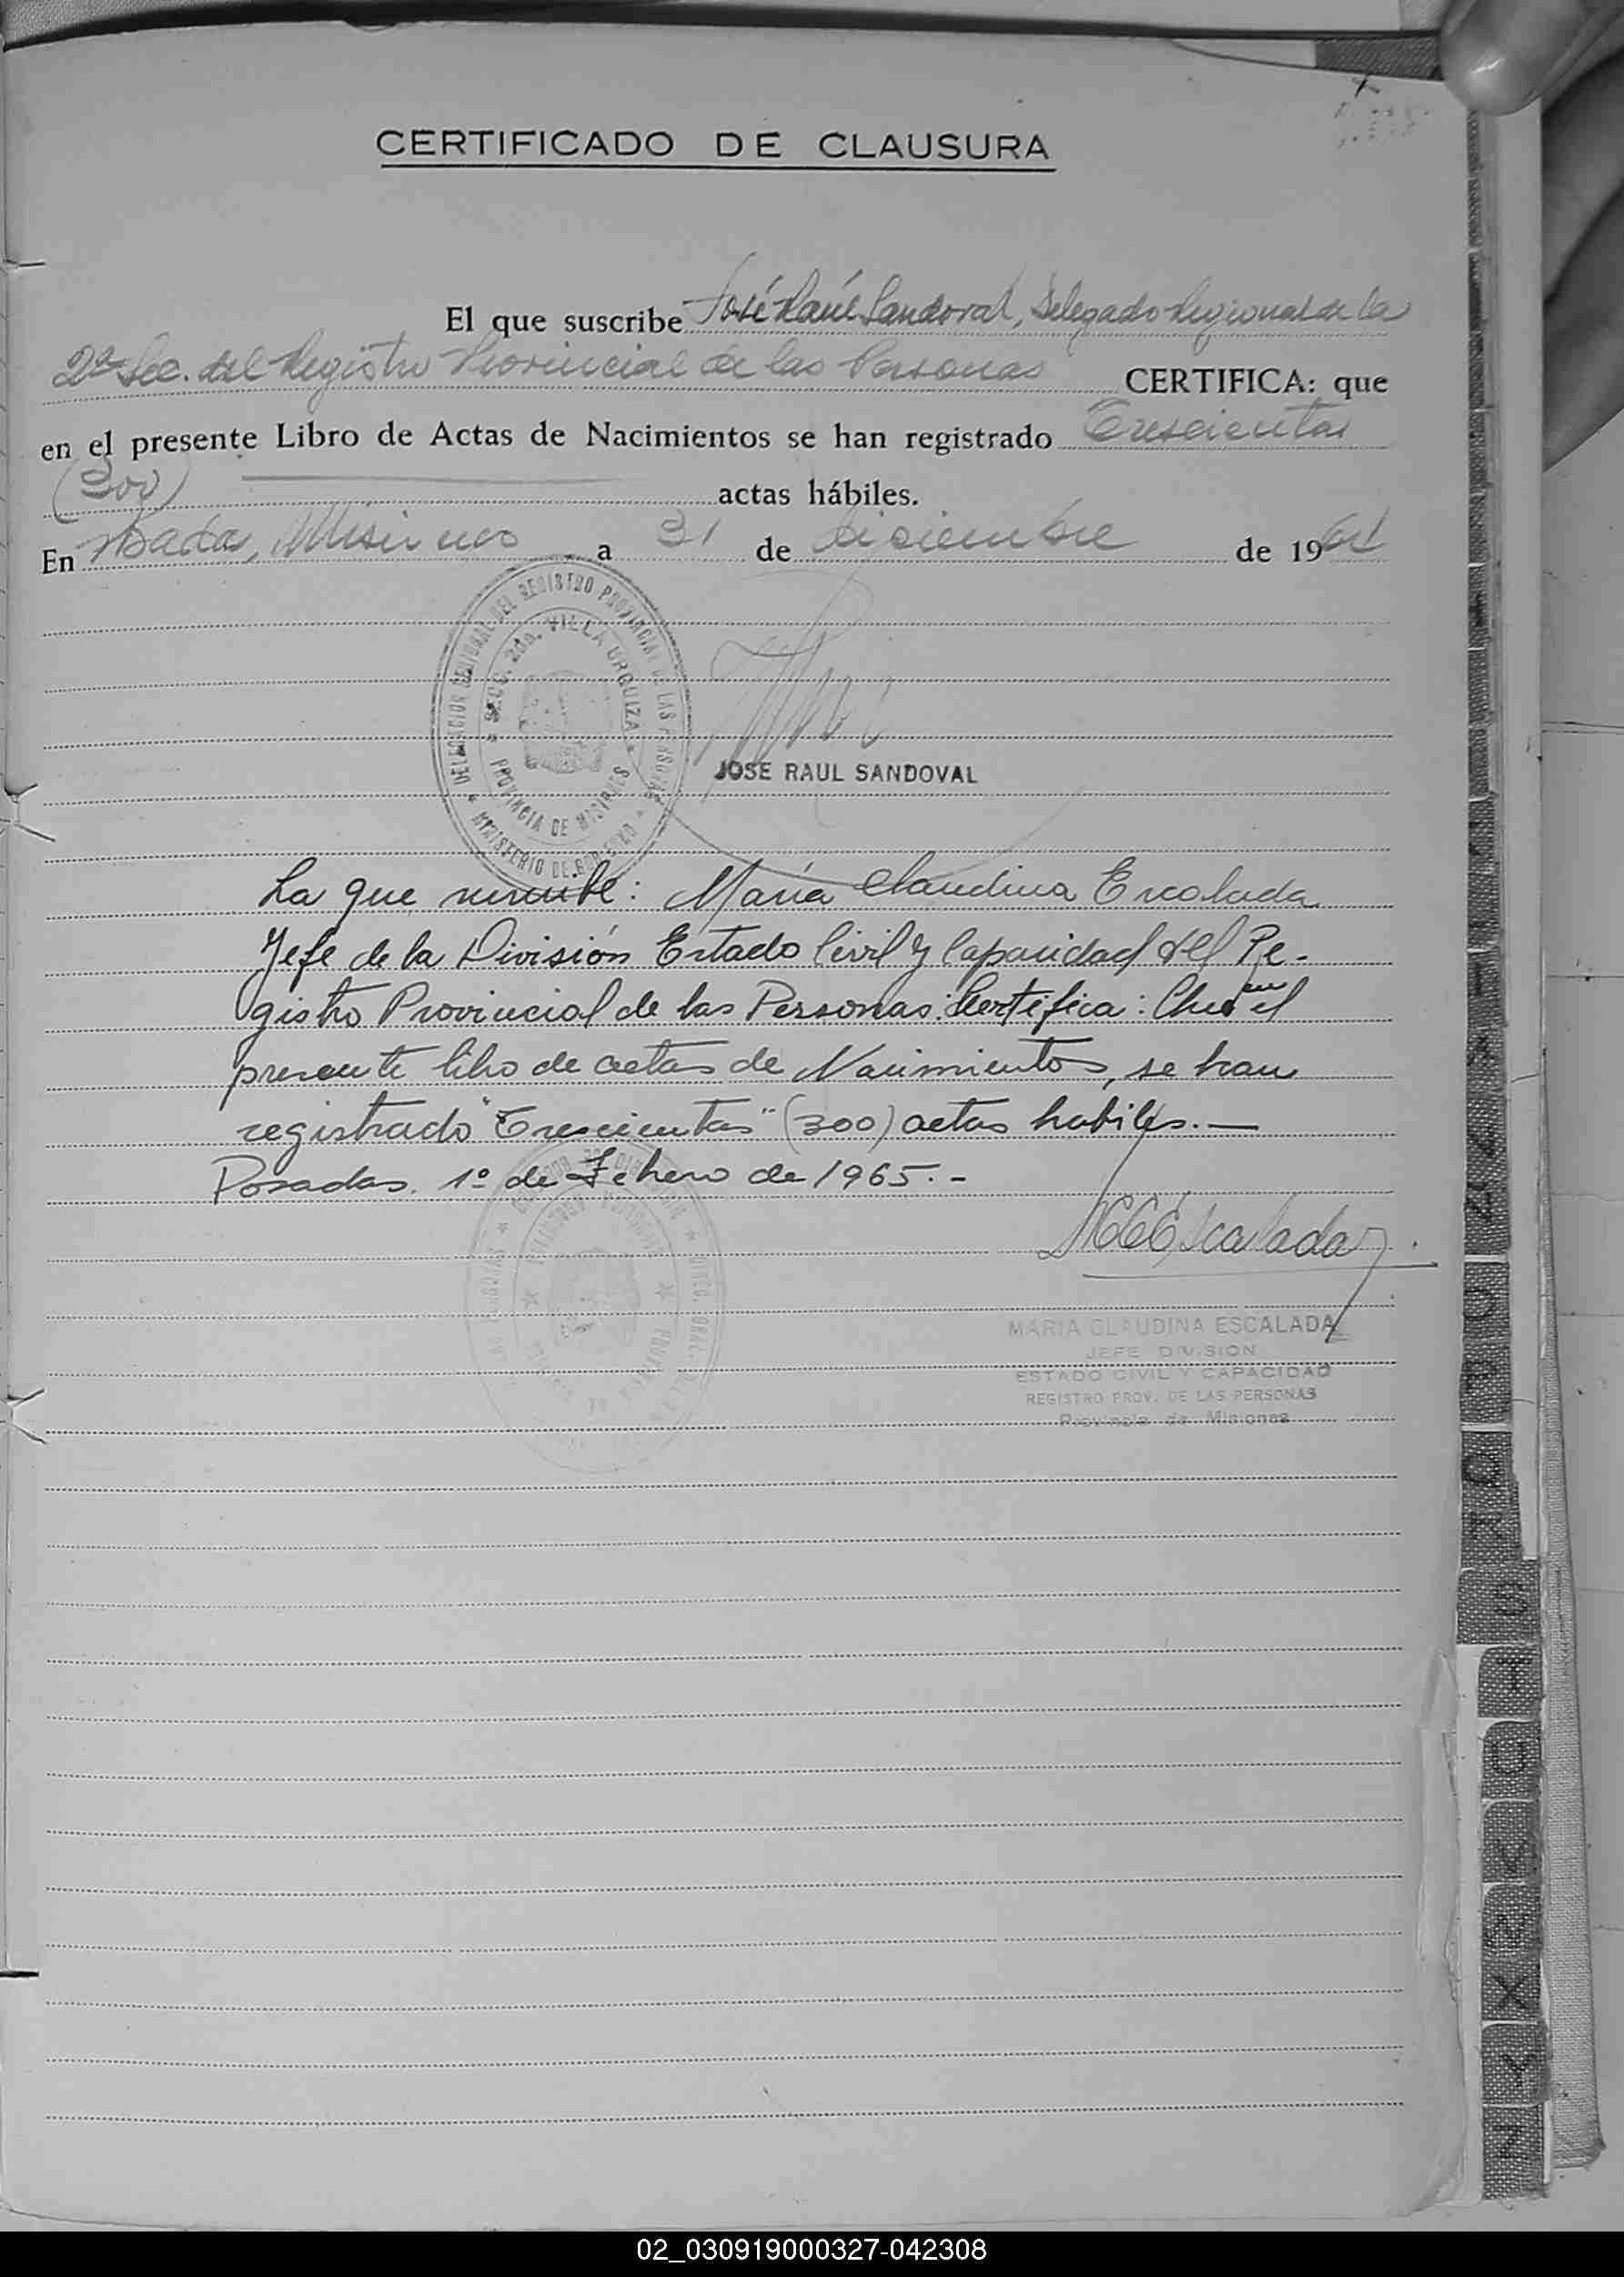 CERTIFICADO DE CLAUSURA
El que suscribe José Raúl Sandoval, Delegado Regional de la
2ª Sec. del Registro Provincial de las Personas CERTIFICA: que
en el presente Libro de Actas de Nacimientos se han registrado Trescientas
(300) actas hábiles.
En Posadas, Misiones a 31 de diciembre de 1964
DELEGACION REGIONAL DEL REGISTRO PROVINCIAL DE LAS PERSONAS
SECC. 2da. VILLA URQUIZA
PROVINCIA DE MISIONES
MINISTERIO DE GOBIERNO
JOSE RAUL SANDOVAL
La que suscribe: María Claudina Escalada
Jefe de la División Estado Civil y Capacidad del Re-
gistro Provincial de las Personas: Certifica: Que en el
presente libro de actas de Nacimientos, se han
registrado "Trescientas" (300) actas habiles.—
Posadas. 1º de Febrero de 1965.-
MCEscalada
MARIA CLAUDINA ESCALADA
JEFE DIVISION
ESTADO CIVIL Y CAPACIDAD
REGISTRO PROV. DE LAS PERSONAS
Provincia de Misiones
02_030919000327-042308